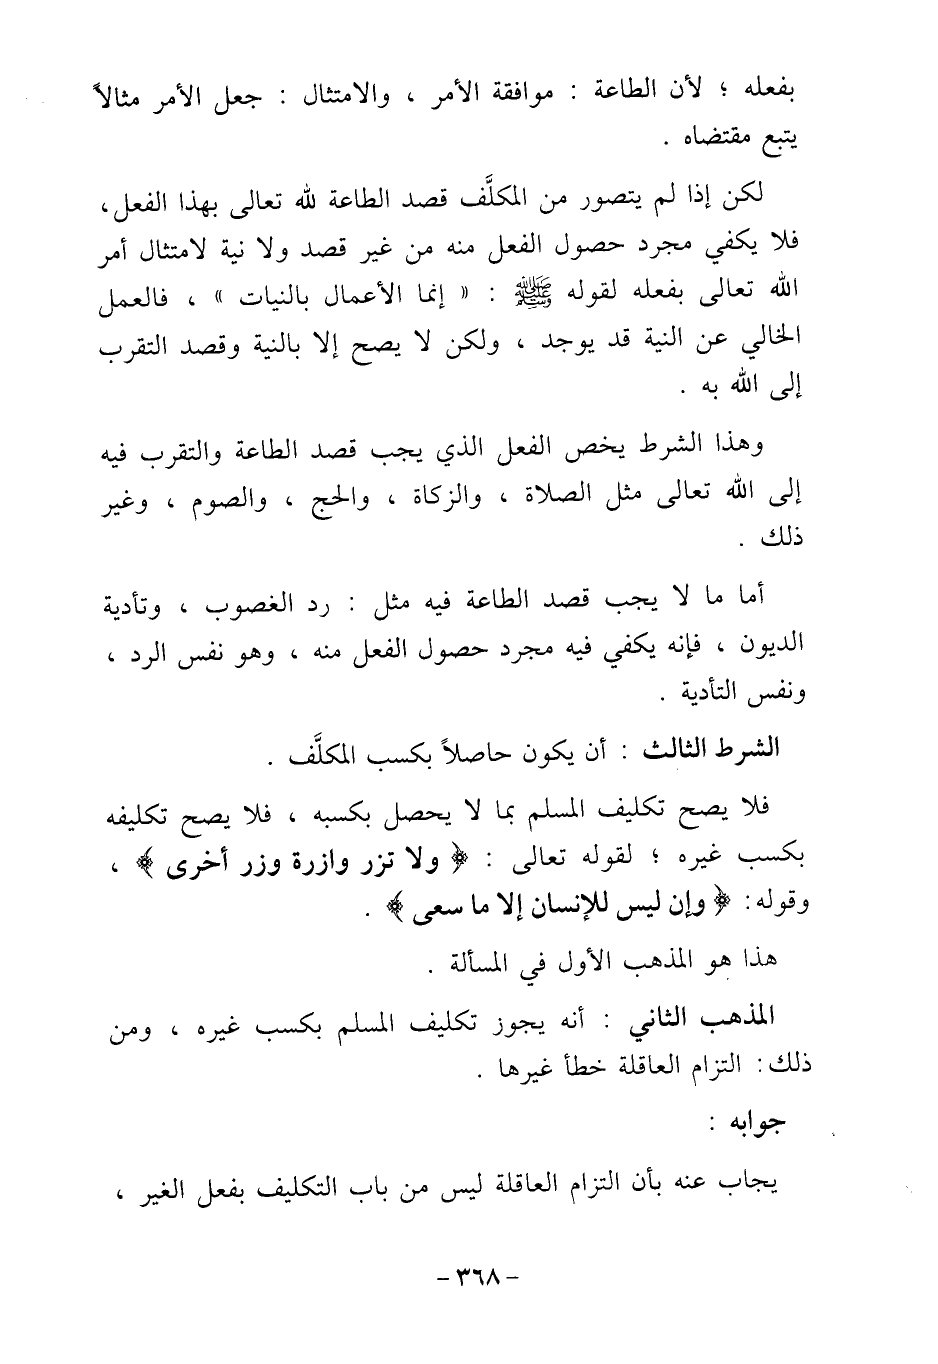 بفعله ؛ لأن الطاعة : موافقة الأمر ، والامتثال : جعل الأمر مثالاً
يتبع مقتضاه .
لكن إذا لم يتصور من المكلَّف قصد الطاعة لله تعالى بهذا الفعل،
فلا يكفي مجرد حصول الفعل منه من غير قصد ولا نية لامتثال أمر
الله تعالى بفعله لقوله ﷺ : « إنما الأعمال بالنيات » ، فالعمل
الخالي عن النية قد يوجد ، ولكن لا يصح إلا بالنية وقصد التقرب
إلى الله به .
وهذا الشرط يخص الفعل الذي يجب قصد الطاعة والتقرب فيه
إلى الله تعالى مثل الصلاة ، والزكاة ، والحج ، والصوم ، وغير
ذلك .
أما ما لا يجب قصد الطاعة فيه مثل : رد الغصوب ، وتأدية
الديون ، فإنه يكفي فيه مجرد حصول الفعل منه ، وهو نفس الرد ،
ونفس التأدية .
الشرط الثالث : أن يكون حاصلاً بكسب المكلَّف .
فلا يصح تكليف المسلم بما لا يحصل بكسبه ، فلا يصح تكليفه
بكسب غيره ؛ لقوله تعالى : ﴿ ولا تزر وازرة وزر أخرى ﴾ ،
وقوله: ﴿ وإن ليس للإنسان إلا ما سعى ﴾ .
هذا هو المذهب الأول في المسألة .
المذهب الثاني : أنه يجوز تكليف المسلم بكسب غيره ، ومن
ذلك: التزام العاقلة خطأ غيرها .
جوابه :
يجاب عنه بأن التزام العاقلة ليس من باب التكليف بفعل الغير ،
- ٣٦٨ -